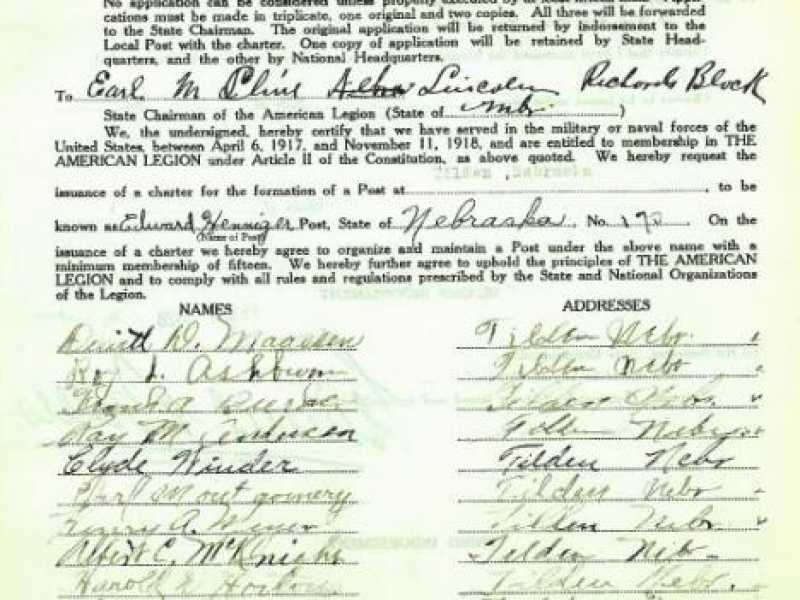 No application can be considered unless properly executed by at least
cations must be made in triplicate, one original and two copies. All three will be forwarded
to the State Chairman. The original application will be returned by indorsement to the
Local Post with the charter. One copy of application will be retained by State Head-
quarters, and the other by National Headquarters.
To Earl M Cline Lincoln Richards Block
State Chairman of the American Legion (State of Nebr. )
We, the undersigned, hereby certify that we have served in the military or naval forces of the
United States, between April 6, 1917, and November 11, 1918, and are entitled to membership in THE
AMERICAN LEGION under Article II of the Constitution, as above quoted. We hereby request the
Tilden Nebraska
issuance of a charter for the formation of a Post at , to be
known as Edward Henniger Post, State of Nebraska, No. 170 On the
(Name of Post)
issuance of a charter we hereby agree to organize and maintain a Post under the above name with a
minimum membership of fifteen. We hereby further agree to uphold the principles of THE AMERICAN
LEGION and to comply with all rules and regulations prescribed by the State and National Organizations
of the Legion.
NAMES ADDRESSES
D. Maassen Tilden Nebr. "
Roy Tilden Nebr "
Tilden Nebr. "
Ray M. Anderson Tilden Nebr "
Clyde Winder Tilden Nebr
Montgomery Tilden Nebr
A. Tilden Nebr "
Albert C. McKnight Tilden Nebr
Harold Tilden Nebr.